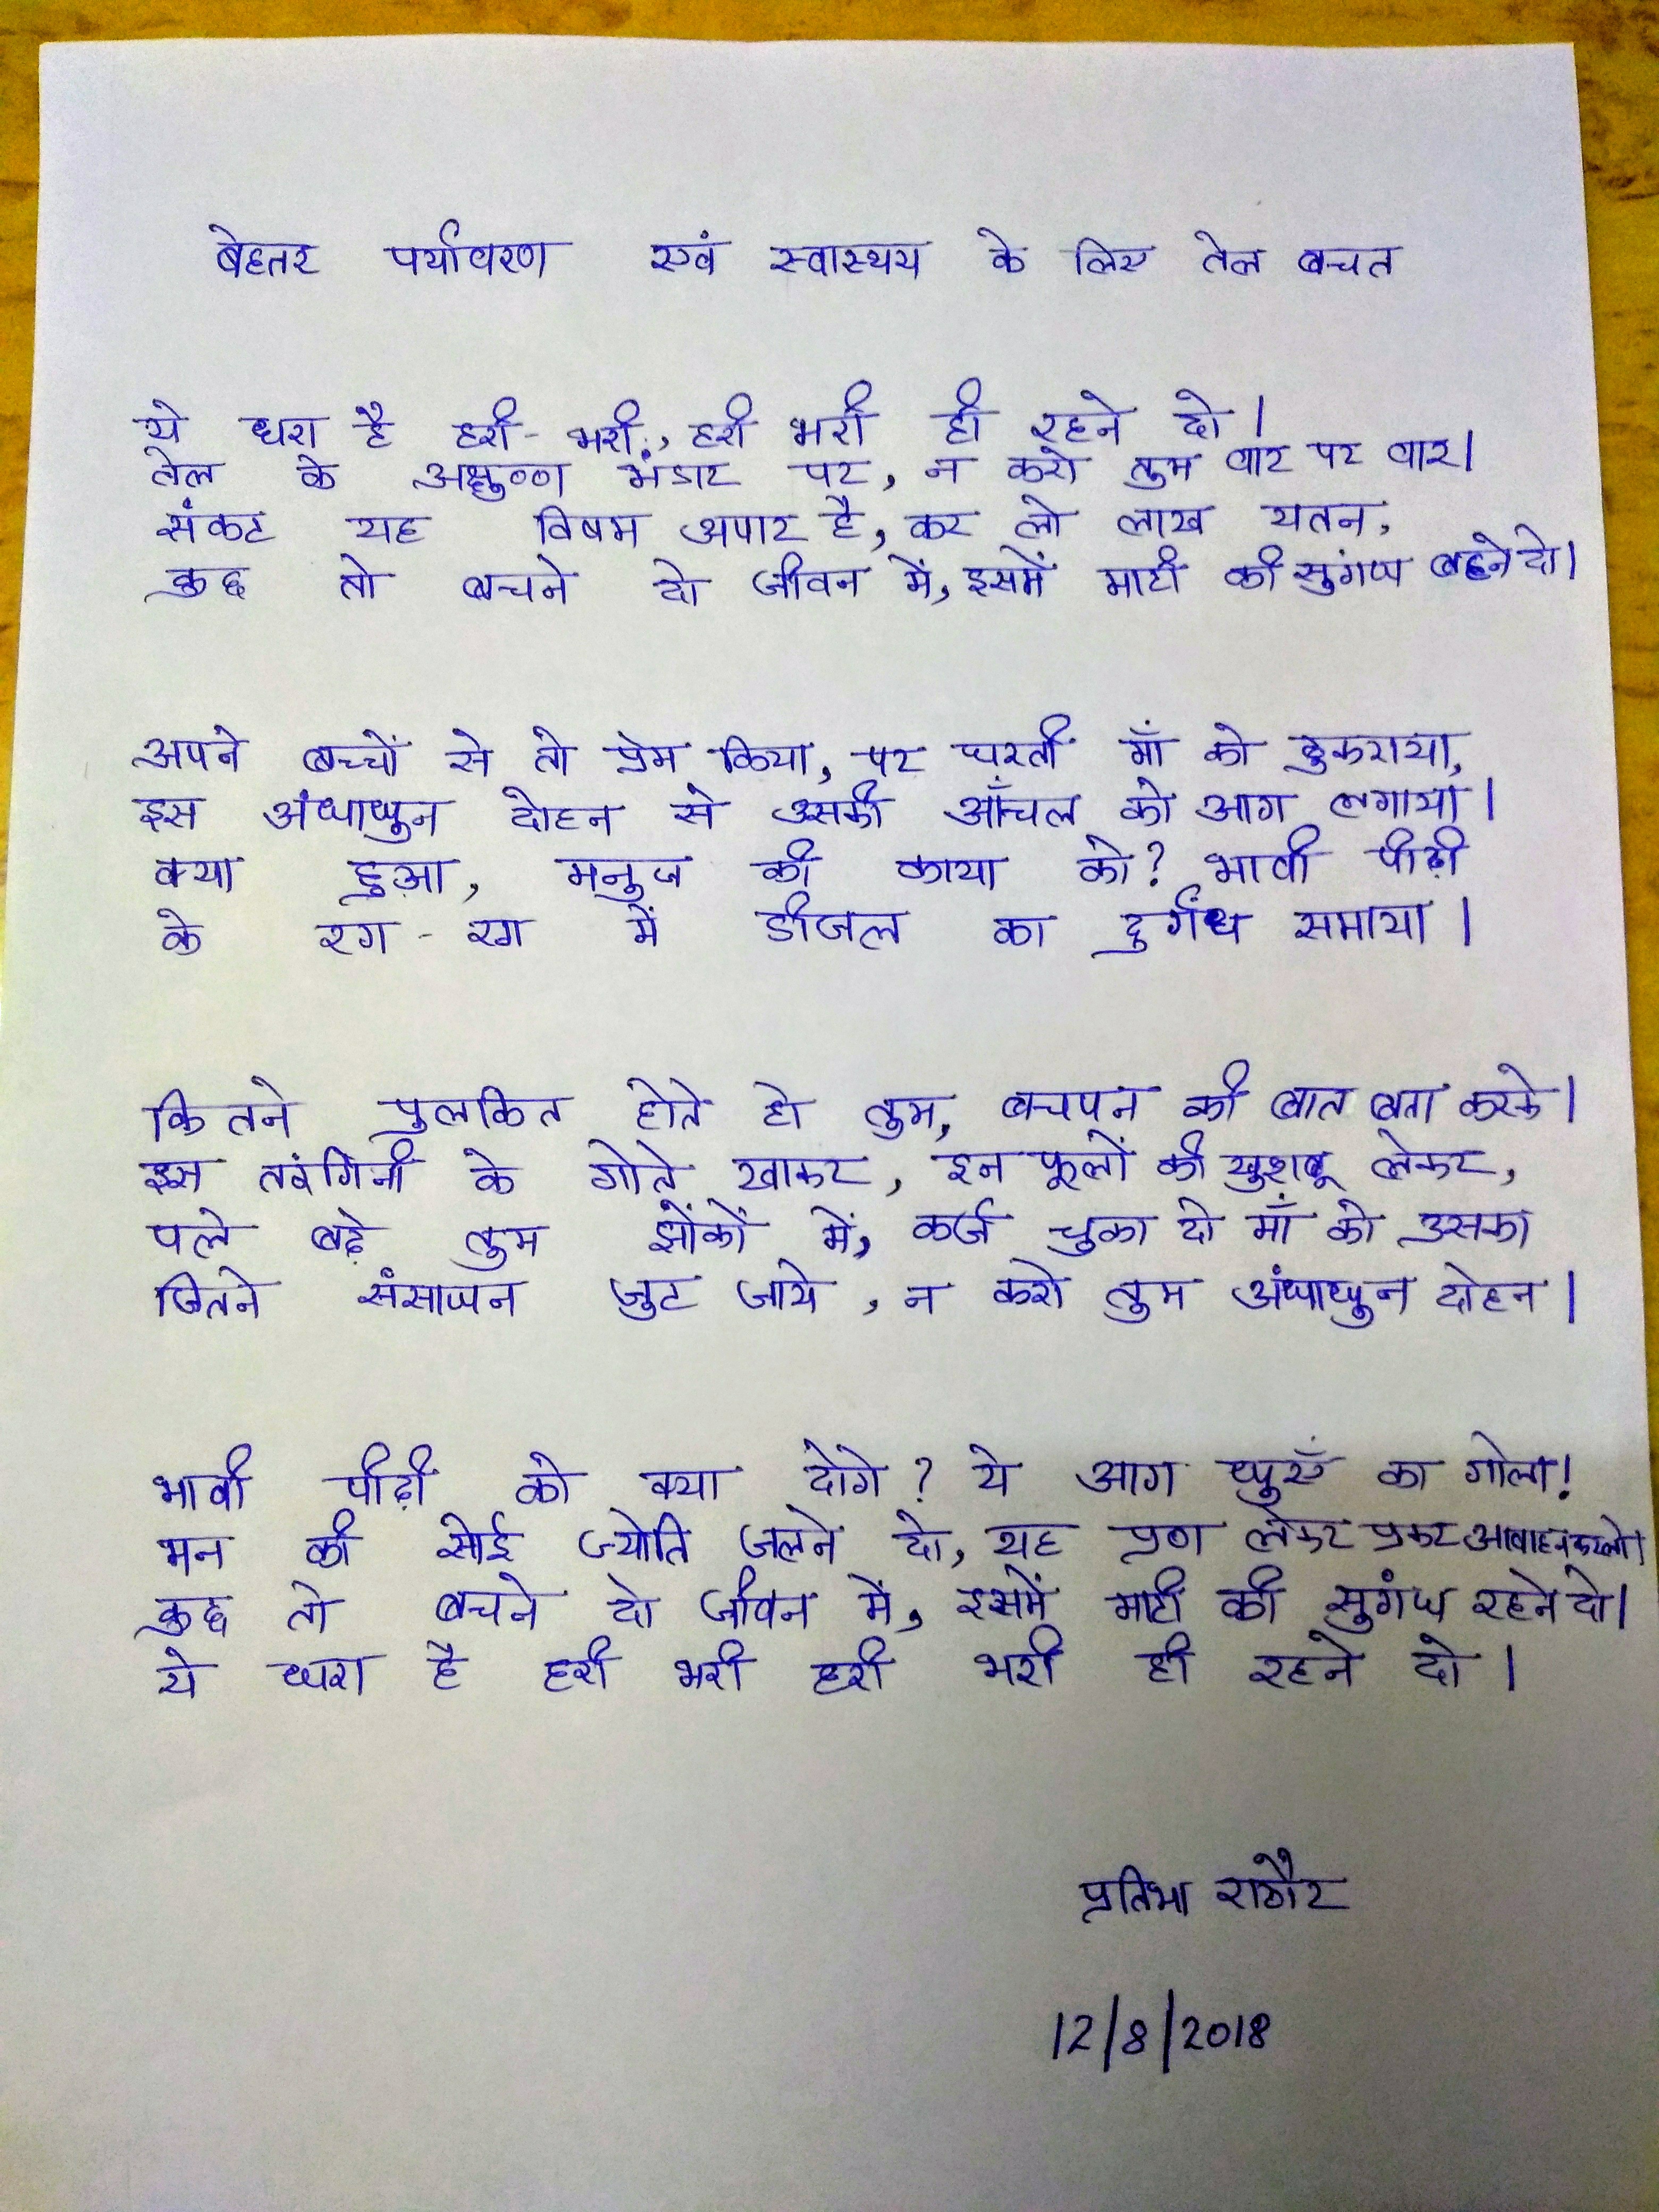 बेहतर पर्यावरण एवं स्वास्थय के लिए तेल बचत
ये धरा है हरी-भरी, हरी भरी ही रहने दो।
तेल के अक्षुण्ण भंडार पर, न करो तुम वार पर वार।
संकट यह विषम अपार है, कर लो लाख यतन,
कुछ तो बचने दो जीवन में, इसमें माटी की सुगंध बहने दो।
अपने बच्चों से तो प्रेम किया, पर धरती माँ को ठुकराया,
इस अंधाधुन दोहन से उसकी आँचल को आग लगाया।
क्या हुआ, मनुज की काया को? भावी पीढ़ी
के रग-रग में डीजल का दुर्गंध समाया।
कितने पुलकित होते हो तुम, बचपन की बात बता करके।
इस तरंगिनी के गोते खाकर, इन फूलों की खुशबू लेकर,
पले बढ़े तुम झोंकों में, कर्ज चुका दो माँ को उसका
जितने संसाधन जुट जाये, न करो तुम अंधाधुन दोहन।
भावी पीढ़ी को क्या दोगे? ये आग धुएँ का गोला!
मन की सोई ज्योति जलने दो, यह प्रण लेकर आवाहन करलो।
कुछ तो बचने दो जीवन में, इसमें माटी की सुगंध रहने दो।
ये धरा है हरी भरी हरी भरी ही रहने दो।
प्रतिभा राठौर
12/8/2018